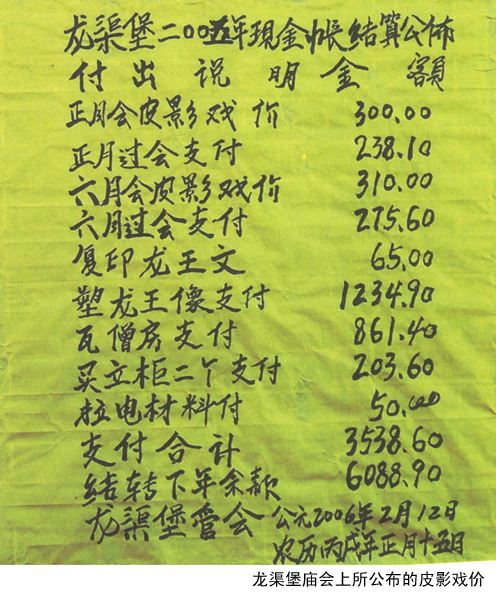 龙渠堡二00五年現金帐结算公佈
付出说明金額
正月会皮影戏价 300.00
正月过会支付 238.10
六月会皮影戏价 310.00
六月过会支付 275.60
复印龙王文 65.00
塑龙王像支付 1234.90
瓦僧房支付 861.40
买立柜二个支付 203.60
拉电材料付 50.00
支付合计 3538.60
结转下年余款 6088.90
龙渠堡管会 公元2006年2月12日
农历丙戌年正月十五日
龙渠堡庙会上所公布的皮影戏价